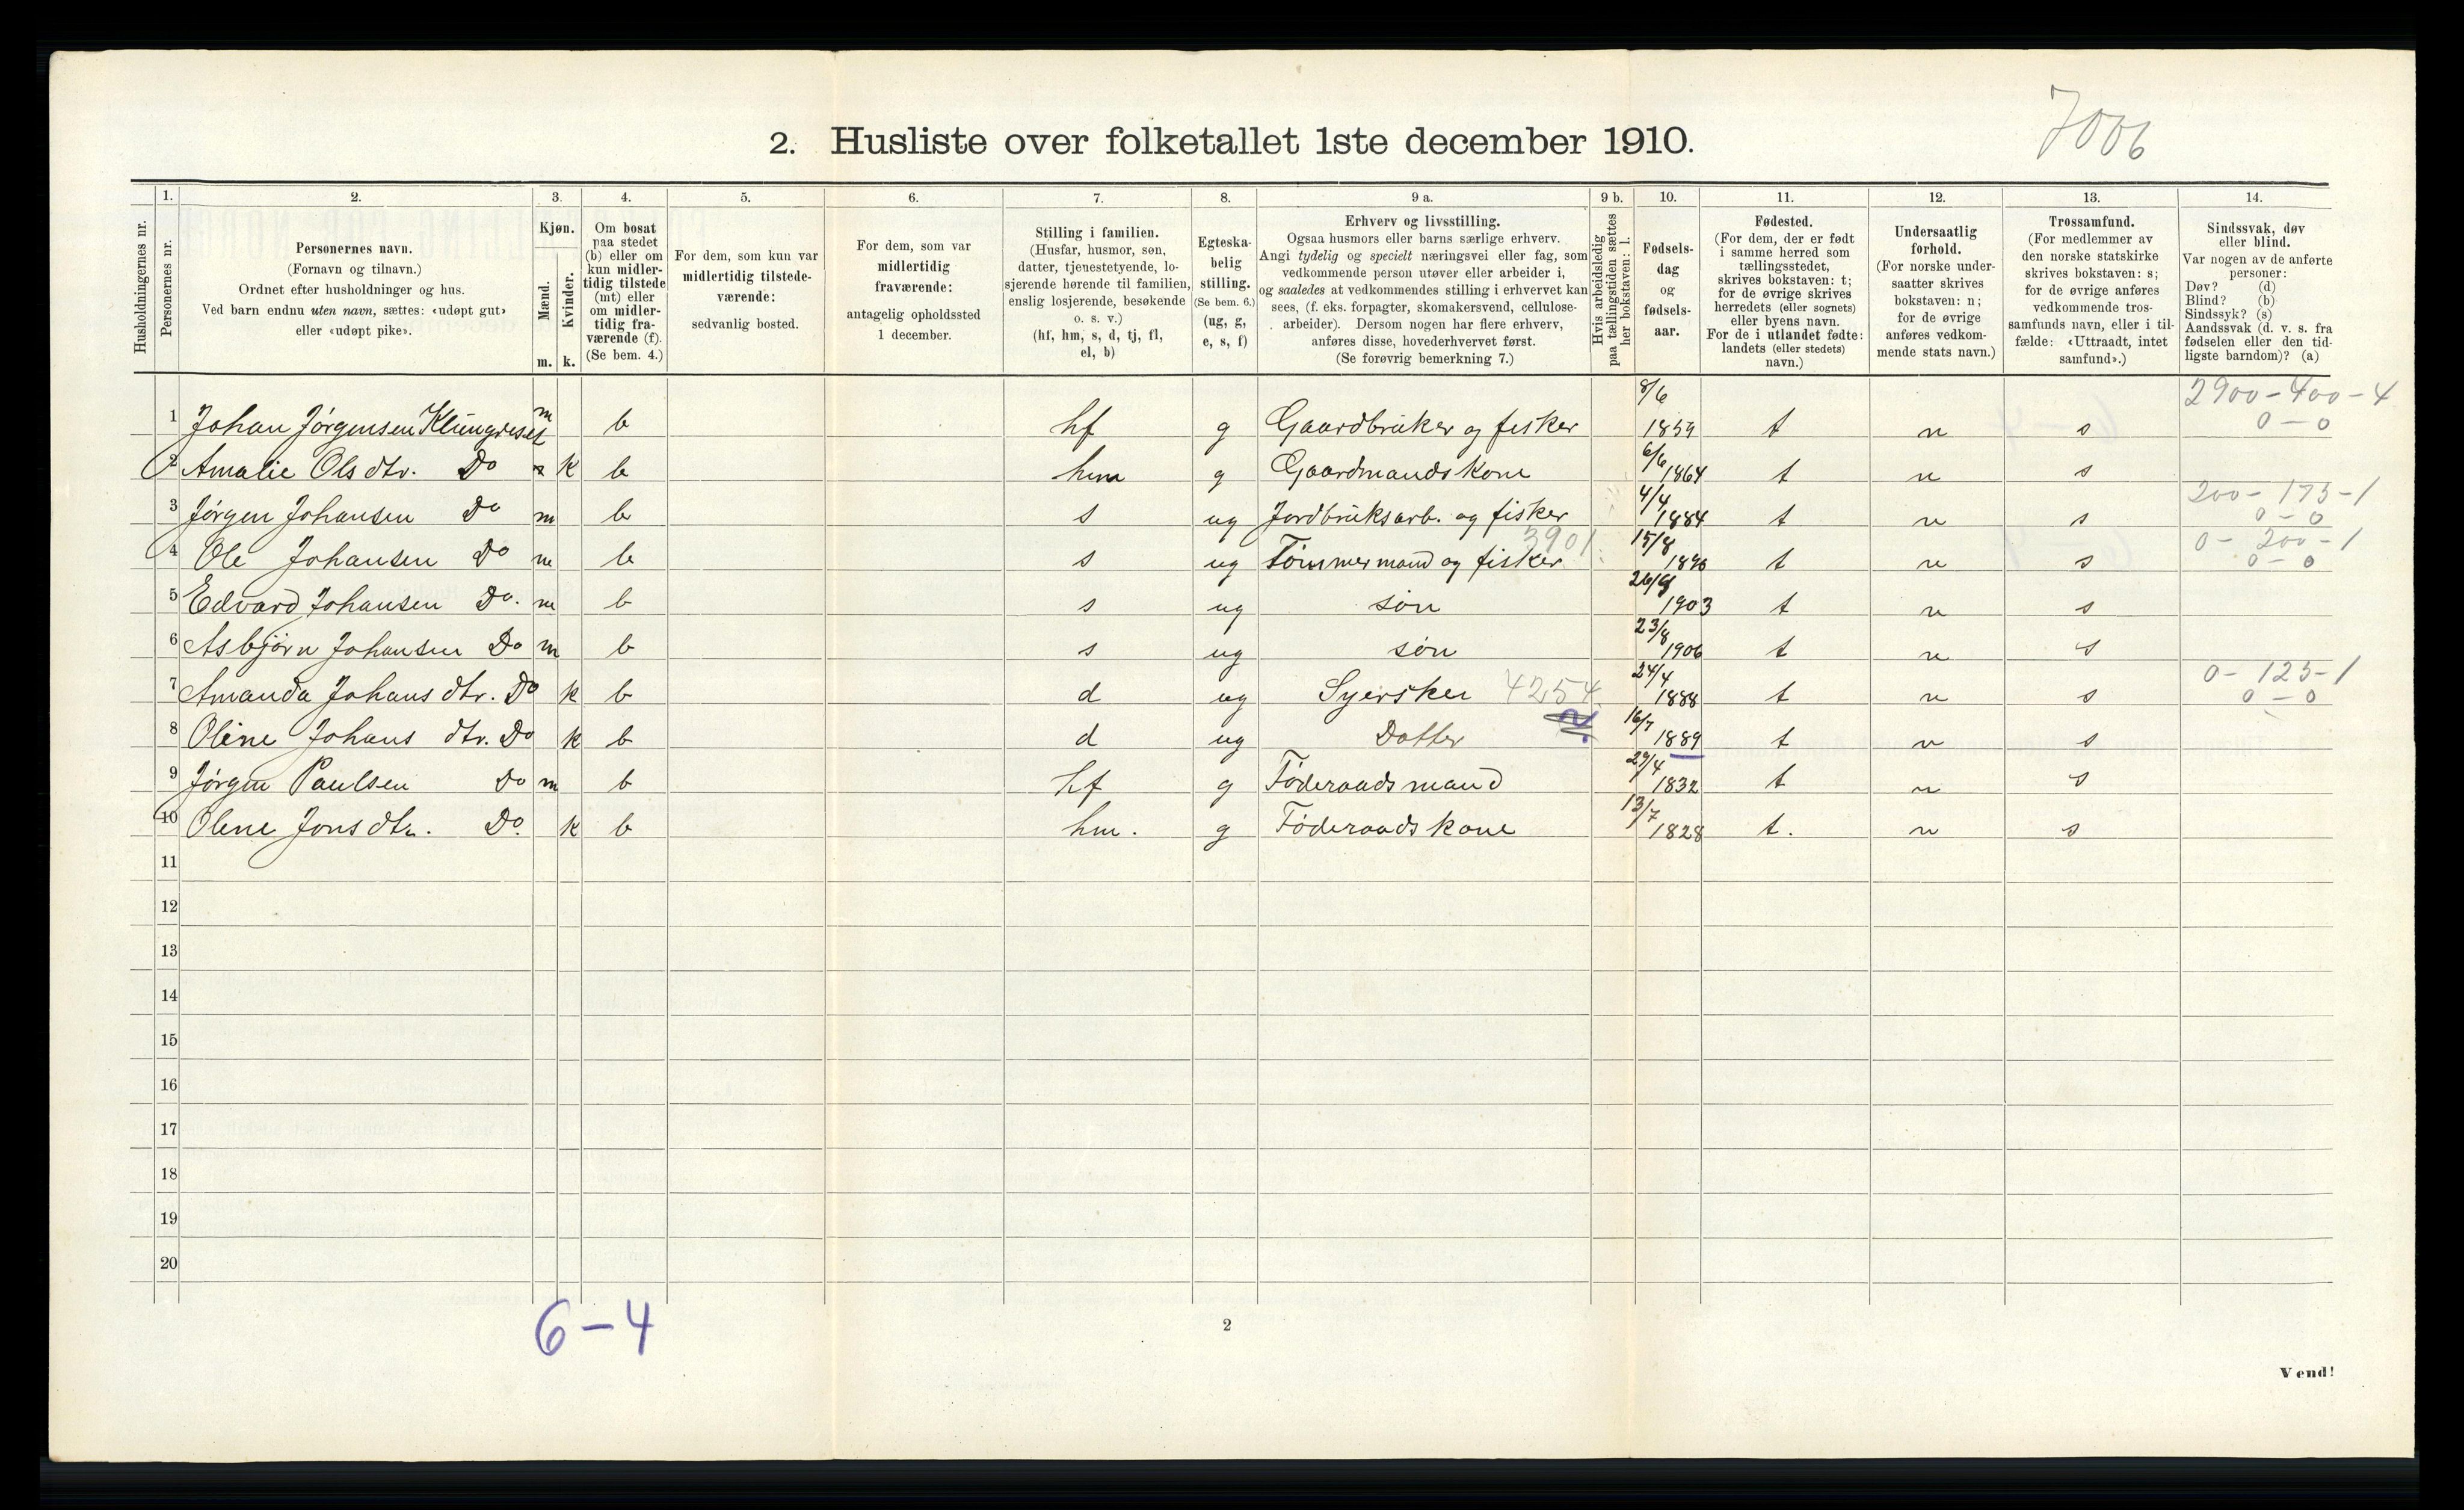 7006
2. Husliste over folketallet 1ste december 1910.
Husholdningernes nr.
1.
Personernes nr.
2.
Personernes navn.
(Fornavn og tilnavn.)
Ordnet efter husholdninger og hus.
Ved barn endnu uten navn, sættes: «udøpt gut»
eller «udøpt pike».
3.
Kjøn.
Mænd.
Kvinder.
m. k.
4.
Om bosat
paa stedet
(b) eller om
kun midler-
tidig tilstede
(mt) eller
om midler-
tidig fra-
værende (f).
(Se bem. 4.)
5.
For dem, som kun var
midlertidig tilstede-
værende:
sedvanlig bosted.
6.
For dem, som var
midlertidig
fraværende:
antagelig opholdssted
1 december.
7.
Stilling i familien.
(Husfar, husmor, søn,
datter, tjenestetyende, lo-
sjerende hørende til familien,
enslig losjerende, besøkende
o. s. v.)
(hf, hm, s, d, tj, fl,
el, b)
8.
Egteska-
belig
stilling.
(Se bem. 6.)
(ug, g,
e, s, f)
9 a.
Erhverv og livsstilling.
Ogsaa husmors eller barns særlige erhverv.
Angi tydelig og specielt næringsvei eller fag, som
vedkommende person utøver eller arbeider i,
og saaledes at vedkommendes stilling i erhvervet kan
sees, (f. eks. forpagter, skomakersvend, cellulose-
arbeider). Dersom nogen har flere erhverv,
anføres disse, hovederhvervet først.
(Se forøvrig bemerkning 7.)
9 b.
Hvis arbeidsledig
paa tællingstiden sættes
her bokstaven: l.
10.
Fødsels-
dag
og
fødsels-
aar.
11.
Fødested.
(For dem, der er født
i samme herred som
tællingsstedet,
skrives bokstaven: t;
for de øvrige skrives
herredets (eller sognets)
eller byens navn.
For de i utlandet fødte:
landets (eller stedets)
navn.)
12.
Undersaatlig
forhold.
(For norske under-
saatter skrives
bokstaven: n;
for de øvrige
anføres vedkom-
mende stats navn.)
13.
Trossamfund.
(For medlemmer av
den norske statskirke
skrives bokstaven: s;
for de øvrige anføres
vedkommende tros-
samfunds navn, eller i til-
fælde: «Uttraadt, intet
samfund».)
14.
Sindssvak, døv
eller blind.
Var nogen av de anførte
personer:
Døv? (d)
Blind? (b)
Sindssyk? (s)
Aandssvak (d. v. s. fra
fødselen eller den tid-
ligste barndom)? (a)
1 Johan Jørgensen Klungreset m b hf g Gaardbruker og fisker 8/6 1859 t n s 2900-400-4 0-0
2 Amalie Olsdtr. Do k b hm g Gaardmandskone 6/6 1864 t n s
3 Jørgen Johansen Do m b s ug Jordbruksarb. og fisker 4/4 1884 t n s 200-175-1 0-0
4 Ole Johansen Do m b s ug Tømmermand og fisker 3901 15/8 1896 t n s 0-200-1 0-0
5 Edvard Johansen Do. m b s ug søn 26/9 1903 t n s
6 Asbjørn Johansen Do m b s ug søn 23/8 1906 t n s
7 Amanda Johansdtr. Do k b d ug Syerske 4254 24/4 1888 t n s 0-125-1 0-0
8 Oline Johans dtr. Do k b d ug Datter 16/7 1889 t n s
9 Jørgen Paulsen Do m b hf g Føderaadsmand 29/4 1832 t n s
10 Olene Jonsdtr. Do. k b hm. g Føderaadskone 13/7 1828 t. n s
11
12
13
14
15
16
17
18
19
20
6-4
2
Vend!